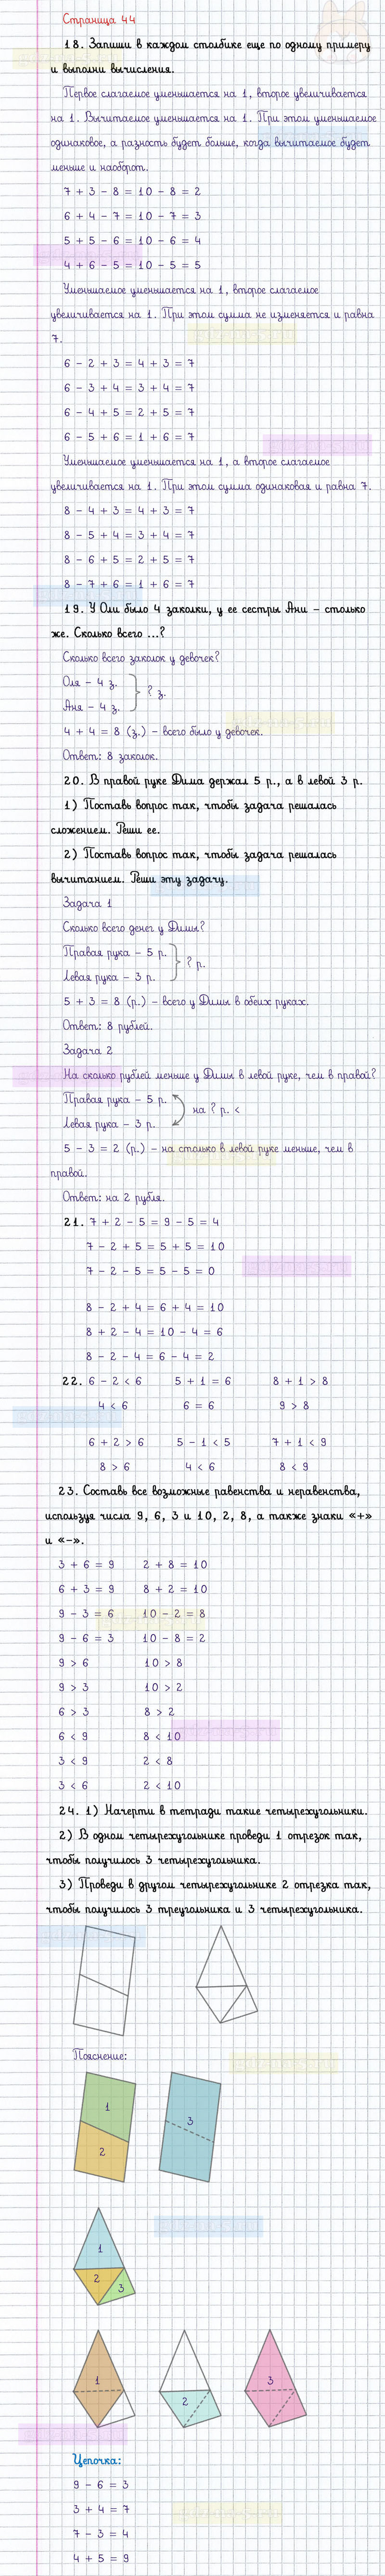 Страница 44
18. Запиши в каждом столбике еще по одному примеру
и выполни вычисления.
Первое слагаемое уменьшается на 1, второе увеличивается
на 1. Вычитаемое уменьшается на 1. При этом уменьшаемое
одинаковое, а разность будет больше, когда вычитаемое будет
меньше и наоборот.
7 + 3 - 8 = 10 - 8 = 2
6 + 4 - 7 = 10 - 7 = 3
5 + 5 - 6 = 10 - 6 = 4
4 + 6 - 5 = 10 - 5 = 5
Уменьшаемое уменьшается на 1, второе слагаемое
увеличивается на 1. При этом сумма не изменяется и равна
7.
6 - 2 + 3 = 4 + 3 = 7
6 - 3 + 4 = 3 + 4 = 7
6 - 4 + 5 = 2 + 5 = 7
6 - 5 + 6 = 1 + 6 = 7
Уменьшаемое уменьшается на 1, а второе слагаемое
увеличивается на 1. При этом сумма одинаковая и равна 7.
8 - 4 + 3 = 4 + 3 = 7
8 - 5 + 4 = 3 + 4 = 7
8 - 6 + 5 = 2 + 5 = 7
8 - 7 + 6 = 1 + 6 = 7
19. У Оли было 4 заколки, у ее сестры Ани – столько
же. Сколько всего ...?
Сколько всего заколок у девочек?
Оля – 4 з.
? з.
Аня – 4 з.
4 + 4 = 8 (з.) – всего было у девочек.
Ответ: 8 заколок.
20. В правой руке Дима держал 5 р., а в левой 3 р.
1) Поставь вопрос так, чтобы задача решалась
сложением. Реши ее.
2) Поставь вопрос так, чтобы задача решалась
вычитанием. Реши эту задачу.
Задача 1
Сколько всего денег у Димы?
Правая рука – 5 р.
? р.
Левая рука – 3 р.
5 + 3 = 8 (р.) – всего у Димы в обеих руках.
Ответ: 8 рублей.
Задача 2
На сколько рублей меньше у Димы в левой руке, чем в правой?
Правая рука – 5 р.
на ? р. <
Левая рука – 3 р.
5 - 3 = 2 (р.) – на столько в левой руке меньше, чем в
правой.
Ответ: на 2 рубля.
21. 7 + 2 - 5 = 9 - 5 = 4
7 - 2 + 5 = 5 + 5 = 10
7 - 2 - 5 = 5 - 5 = 0
8 - 2 + 4 = 6 + 4 = 10
8 + 2 - 4 = 10 - 4 = 6
8 - 2 - 4 = 6 - 4 = 2
22. 6 - 2 < 6 5 + 1 = 6 8 + 1 > 8
4 < 6 6 = 6 9 > 8
6 + 2 > 6 5 - 1 < 5 7 + 1 < 9
8 > 6 4 < 6 8 < 9
23. Составь все возможные равенства и неравенства,
используя числа 9, 6, 3 и 10, 2, 8, а также знаки «+»
и «-».
3 + 6 = 9 2 + 8 = 10
6 + 3 = 9 8 + 2 = 10
9 - 3 = 6 10 - 2 = 8
9 - 6 = 3 10 - 8 = 2
9 > 6 10 > 8
9 > 3 10 > 2
6 > 3 8 > 2
6 < 9 8 < 10
3 < 9 2 < 8
3 < 6 2 < 10
24. 1) Начерти в тетради такие четырехугольники.
2) В одном четырехугольнике проведи 1 отрезок так,
чтобы получилось 3 четырехугольника.
3) Проведи в другом четырехугольнике 2 отрезка так,
чтобы получилось 3 треугольника и 3 четырехугольника.
Пояснение:
1
3
2
1
2
3
1
2
3
Цепочка:
9 - 6 = 3
3 + 4 = 7
7 - 3 = 4
4 + 5 = 9